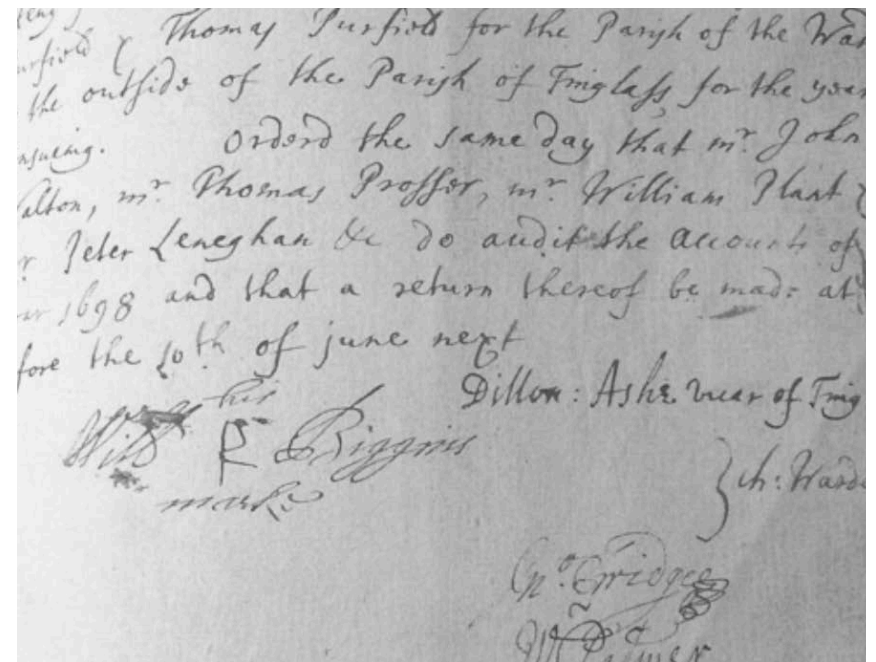 Thomas Purfield for the Parish of the War
the outside of the Parish of Finglass for the year
nsueing. Orderd the same day that mr. John
alton, mr. Thomas Prosser, mr. William Plant
r Peter Leneghan &c do audit the accounts of
1698 and that a return thereof be made at
fore the 10th of june next
Dillon: Ashe vicar of Fing
his
Will R Biggins
marke
ch: Warde